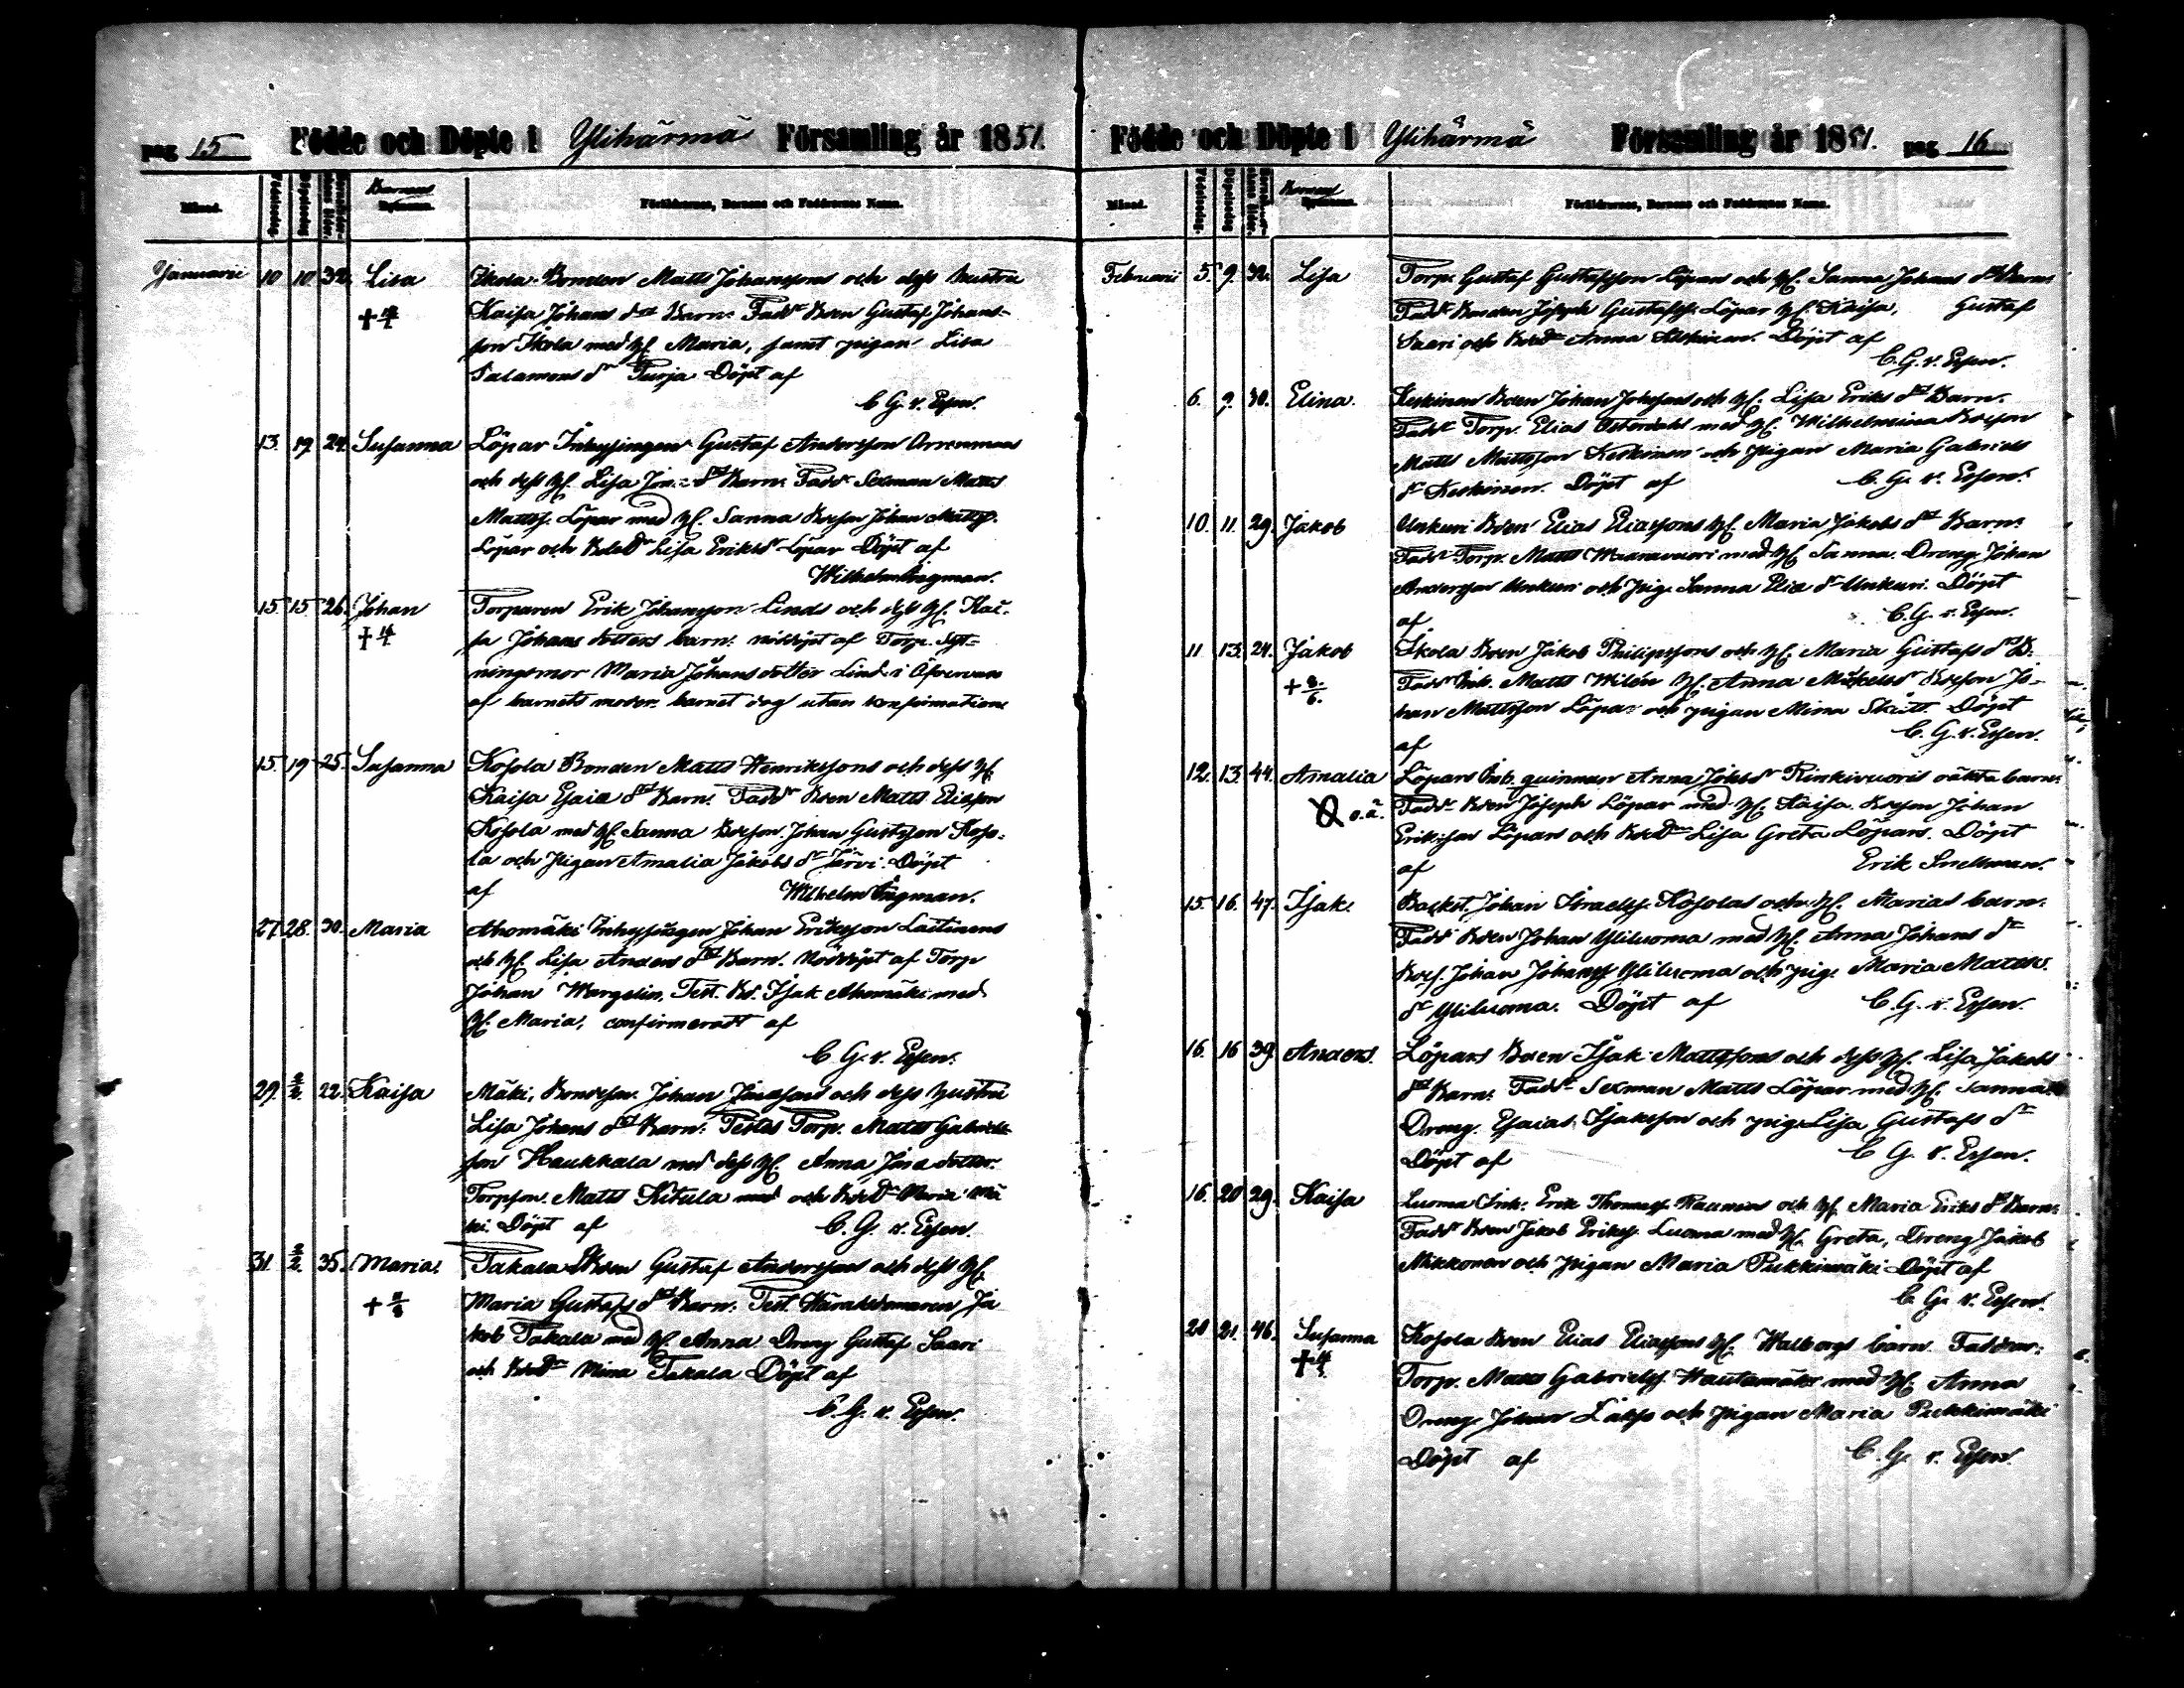 pag 15 Födde och Döpte i Ylihärmä Församling år 1851.
Månad. Födelsedag. Döpelsedag Barnens Bynamn. Föräldrarnes, Barnens och Faddrarnes Namn.
Januarii 10 10 32. Lisa Ikola Bonden Matts Johanssons och dess hustru
Kaisa Johans dr Barn. Faddr Bden Gustaf Johans-
son Ikola med H. Maria, samt pigan Lisa
Salamons dr Turja Döpt af
C. G. v. Essen.
13. 19 24. Susanna Löpar Inhysingen Gustaf Andersson Orrenmaas
och dess H. Lisa dr Barn. Faddr Sexman Matts
Mattss. Löpar med H. Sanna Bdeson Johan Mattss.
Löpar och Bdedr Lisa Eriksdr Löpar Döpt af
Wilhelm Ingman.
15. 15 26. Johan Torparen Erik Johansson Linds och dess H. Kai-
sa Johans dotters barn. nöddöpt af Torp. Syt-
ningsmor Maria Johans dotter Lind i öfvervaro
af barnets moder. barnet dog utan konfirmation
15. 19 25. Susanna Kosola Bonden Matts Henrikssons och dess H.
Kaisa Esaiæ dr Barn. Faddr Bden Matts Eliasson
Kosola med H. Sanna Bdeson. Johan Gustafsson Koso-
la och Pigan Amalia Jakobs dr Järvi. Döpt
af Wilhelm Ingman.
27. 28. 30. Maria Ahomäki Inhysingen Johan Eriksson Laitinens
och H. Lisa Anders dr Barn. Nöddöpt af Torp
Johan Wargelin, Test. Bd. Isak Ahomäki med
H. Maria, confirmeradt af
C. G. v. Essen.
29. 2/2. 22. Kaisa Mäki, Bondeson Johan och dess hustru
Lisa Johans dr Barn. Testes Torp. Matts Gabriels-
son Haukkala med dess H. Anna dotter.
Torpson. Matts Kitula med och Bdedr Maria Mä
ki. Döpt af C. G. v. Essen.
31. 2/2. 35. Maria. Takala Bden Gustaf Anderssons och dess H.
Maria Gustafs dr Barn. Test. Häradsdomaren Ja
kob Takala med H. Anna Dreng Gustaf Saari
och Bdedr Mina Takala Döpt af
C. G. v. Essen.
Födde och Döpte i Ylihärmä Församling år 1851. pag 16
Månad. Födelsedag. Döpelsedag Barnens Bynamn. Föräldrarnes, Barnens och Faddrarnes Namn.
Februarii 5. 9. 32. Lisa Torp. Gustaf Gustafsson Löpars och H. Sanna Johans dr Barn.
Faddr Bonden Joseph Gustafss. Löpar H. Kaisa, Gustaf
Saari och Bdedr Anna Keskinen. Döpt af
C. G. v. Essen.
6. 9. 30. Elina. Keskinen Bden Johan Johssons och H. Lisa Eriks dr Barn.
Faddr Torp. Elias med H. Wilhelmina Bdeson
Matts Mattsson Keskinen och Pigan Maria Gabriels
dr Keskinen. Döpt af C. G. v. Essen.
10. 11. 29. Jakob Unkuri Bden Elias Eliassons H. Maria Jakobs dr Barn.
Faddr Torp. Matts med H. Sanna. Dreng. Johan
Andersson Unkuri och Pig. Sanna Eliæ dr Unkuri. Döpt
af C. G. v. Essen.
11 13. 24. Jakob Ikola Bden Jakob Philipssons och H. Maria Gustafs dr B.
+ 8./6. Faddr Inh. Matts Wilén H. Anna Bdeson Jo-
han Mattsson Löpar och pigan Mina Skått. Döpt
af C. G. v. Essen.
12. 13. 44. Amalia Löpars Inh. quinnan Anna Rinkivuoris oäkta barn.
o.ä. Faddr Bden Joseph Löpar med H. Kaisa. Bdeson Johan
Eriksson Löpars och Bdedr Lisa Greta Löpars. Döpt
af Erik Snellman.
15. 16. 47. Isak. Backst. Johan Israelss. Kosolas och H. Marias barn.
Faddr Bden Johan Yliluoma med H. Anna Johans dr
Bdes. Johan Johanss Yliluoma och pig. Maria Matts.
dr Yliluoma. Döpt af C. G. v. Essen.
16. 16 39. Anders. Löpars Bden Isak Mattssons och dess H. Lisa Jakobs
dr Barn. Faddr Sexman Matts Löpar med H. Sanna
Dreng. Esaias Isaksson och pig. Lisa Gustafs dr
Döpt af C. G. v. Essen.
16. 20 29. Kaisa Luoma Inh. Erik Thomass. Raunios och H. Maria Eriks dr Barn.
Faddr Bden Jakob Erikss. Luoma med H. Greta, Dreng Jakob
Mikkonen och Pigan Maria Pukkimäki Döpt af
C. G. v. Essen.
20 21. 46. Susanna Kosola Bden Elias Eliassons H. Walborgs barn. Faddrar.
Torp. Matts Gabrielss. Hautamäki med H. Anna
Dreng. Johan och Pigan Maria Pukkimäki
Döpt af C. G. v. Essen.